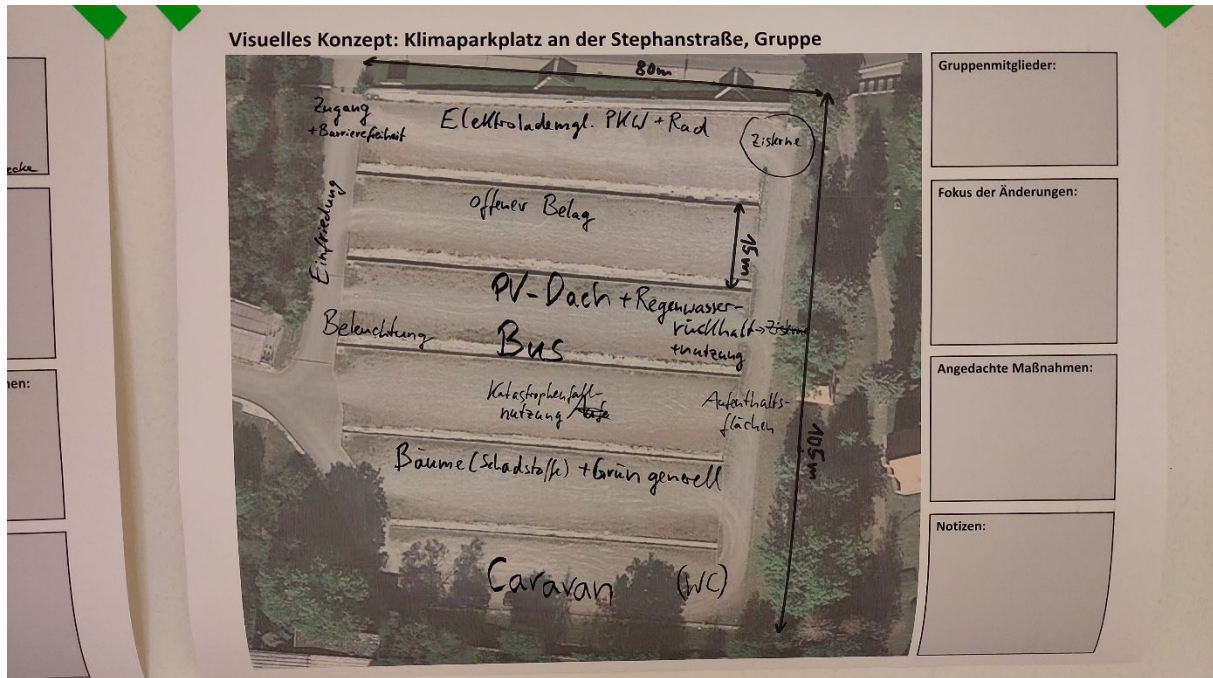 Visuelles Konzept: Klimaparkplatz an der Stephanstraße, Gruppe
80m
Zugang
+Barrierefreiheit
Elektrolademgl. PKW + Rad
Zisterne
Einfriedung
offener Belag
15m
PV-Dach + Regenwasser-
rückhalt → Zisterne
+nutzung
Beleuchtung
Bus
Katastrophenfall-
nutzung
Aufenthalts-
flächen
105m
Bäume (Schadstoffe) + Grün generell
Caravan (WC)
Gruppenmitglieder:
Fokus der Änderungen:
Angedachte Maßnahmen:
Notizen:
ecke
nen: